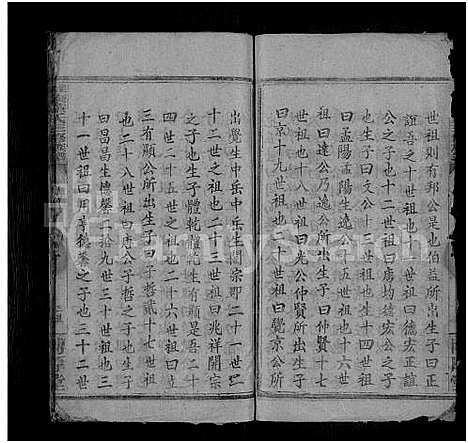 世祖則有邦公也伯益所出生子曰正
誼吾之十一世祖也十一世祖曰德宏正誼
公之子也十二世祖曰唐均德宏公之子
也生子曰文公十三世祖也生子十四世
曰孟陽孟陽生逸公十五世祖也十六世
祖曰達公乃逸公所出生子曰仲賢十七
世祖也十八世祖曰光公仲賢所出生子
曰京十九世祖也二十世祖曰覺京公所
出覺生中岳中岳生開宗即二十一世二
十二世之祖也二十三世祖曰兆祥開宗
之子也生子體乾體乾生有顯是吾二十
四世二十五世之祖也二十六世祖曰廷
三有顯公所出生子曰子哲貳十七世祖
也二十八世祖曰唐公子哲之子也生子
曰昌昌生德馨二十九世三十世祖也三
十一世祖曰用章德馨之子也三十二世